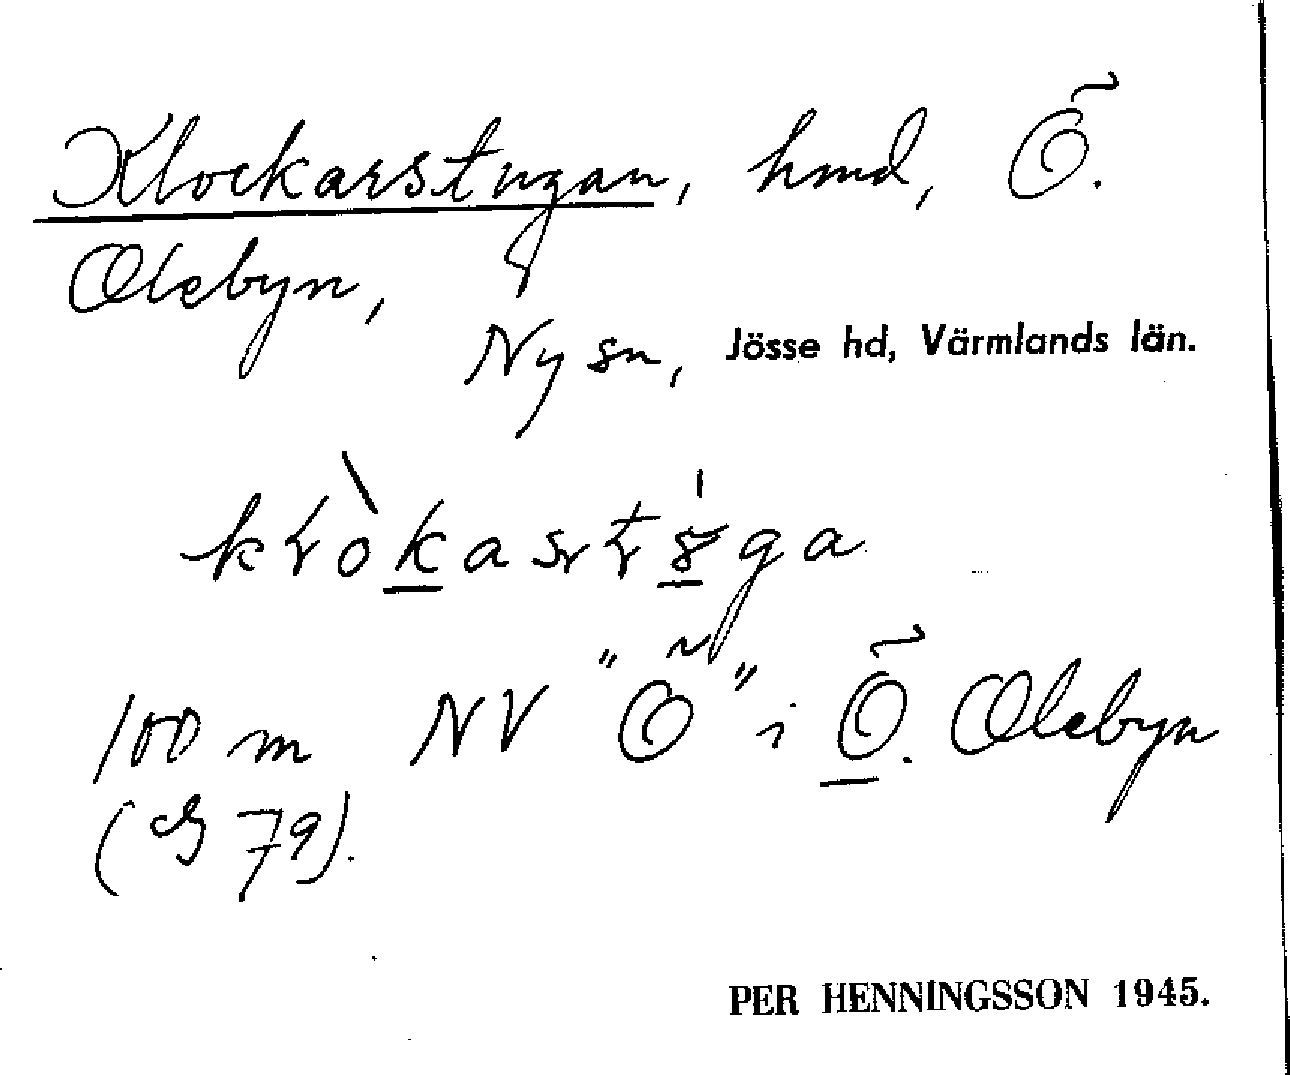 Klockarstugan, hmd, Ö.
Olebyn,
Ny sn, Jösse hd, Värmlands län.
100 m NV "Ö" i Ö. Olebyn
(79).
PER HENNINGSSON 1945.